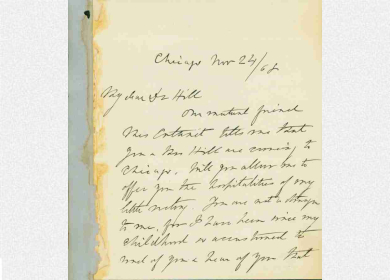 Chicago Nov 24/68
My dear Dr Hill
Our mutual friend
Mrs tells me that
you & Mrs Hill are coming to
Chicago. Will you allow me to
offer you the hospitalities of my
little You are not a stranger
to me, for I have been since my
childhood so accustomed to
read of you & hear of you that